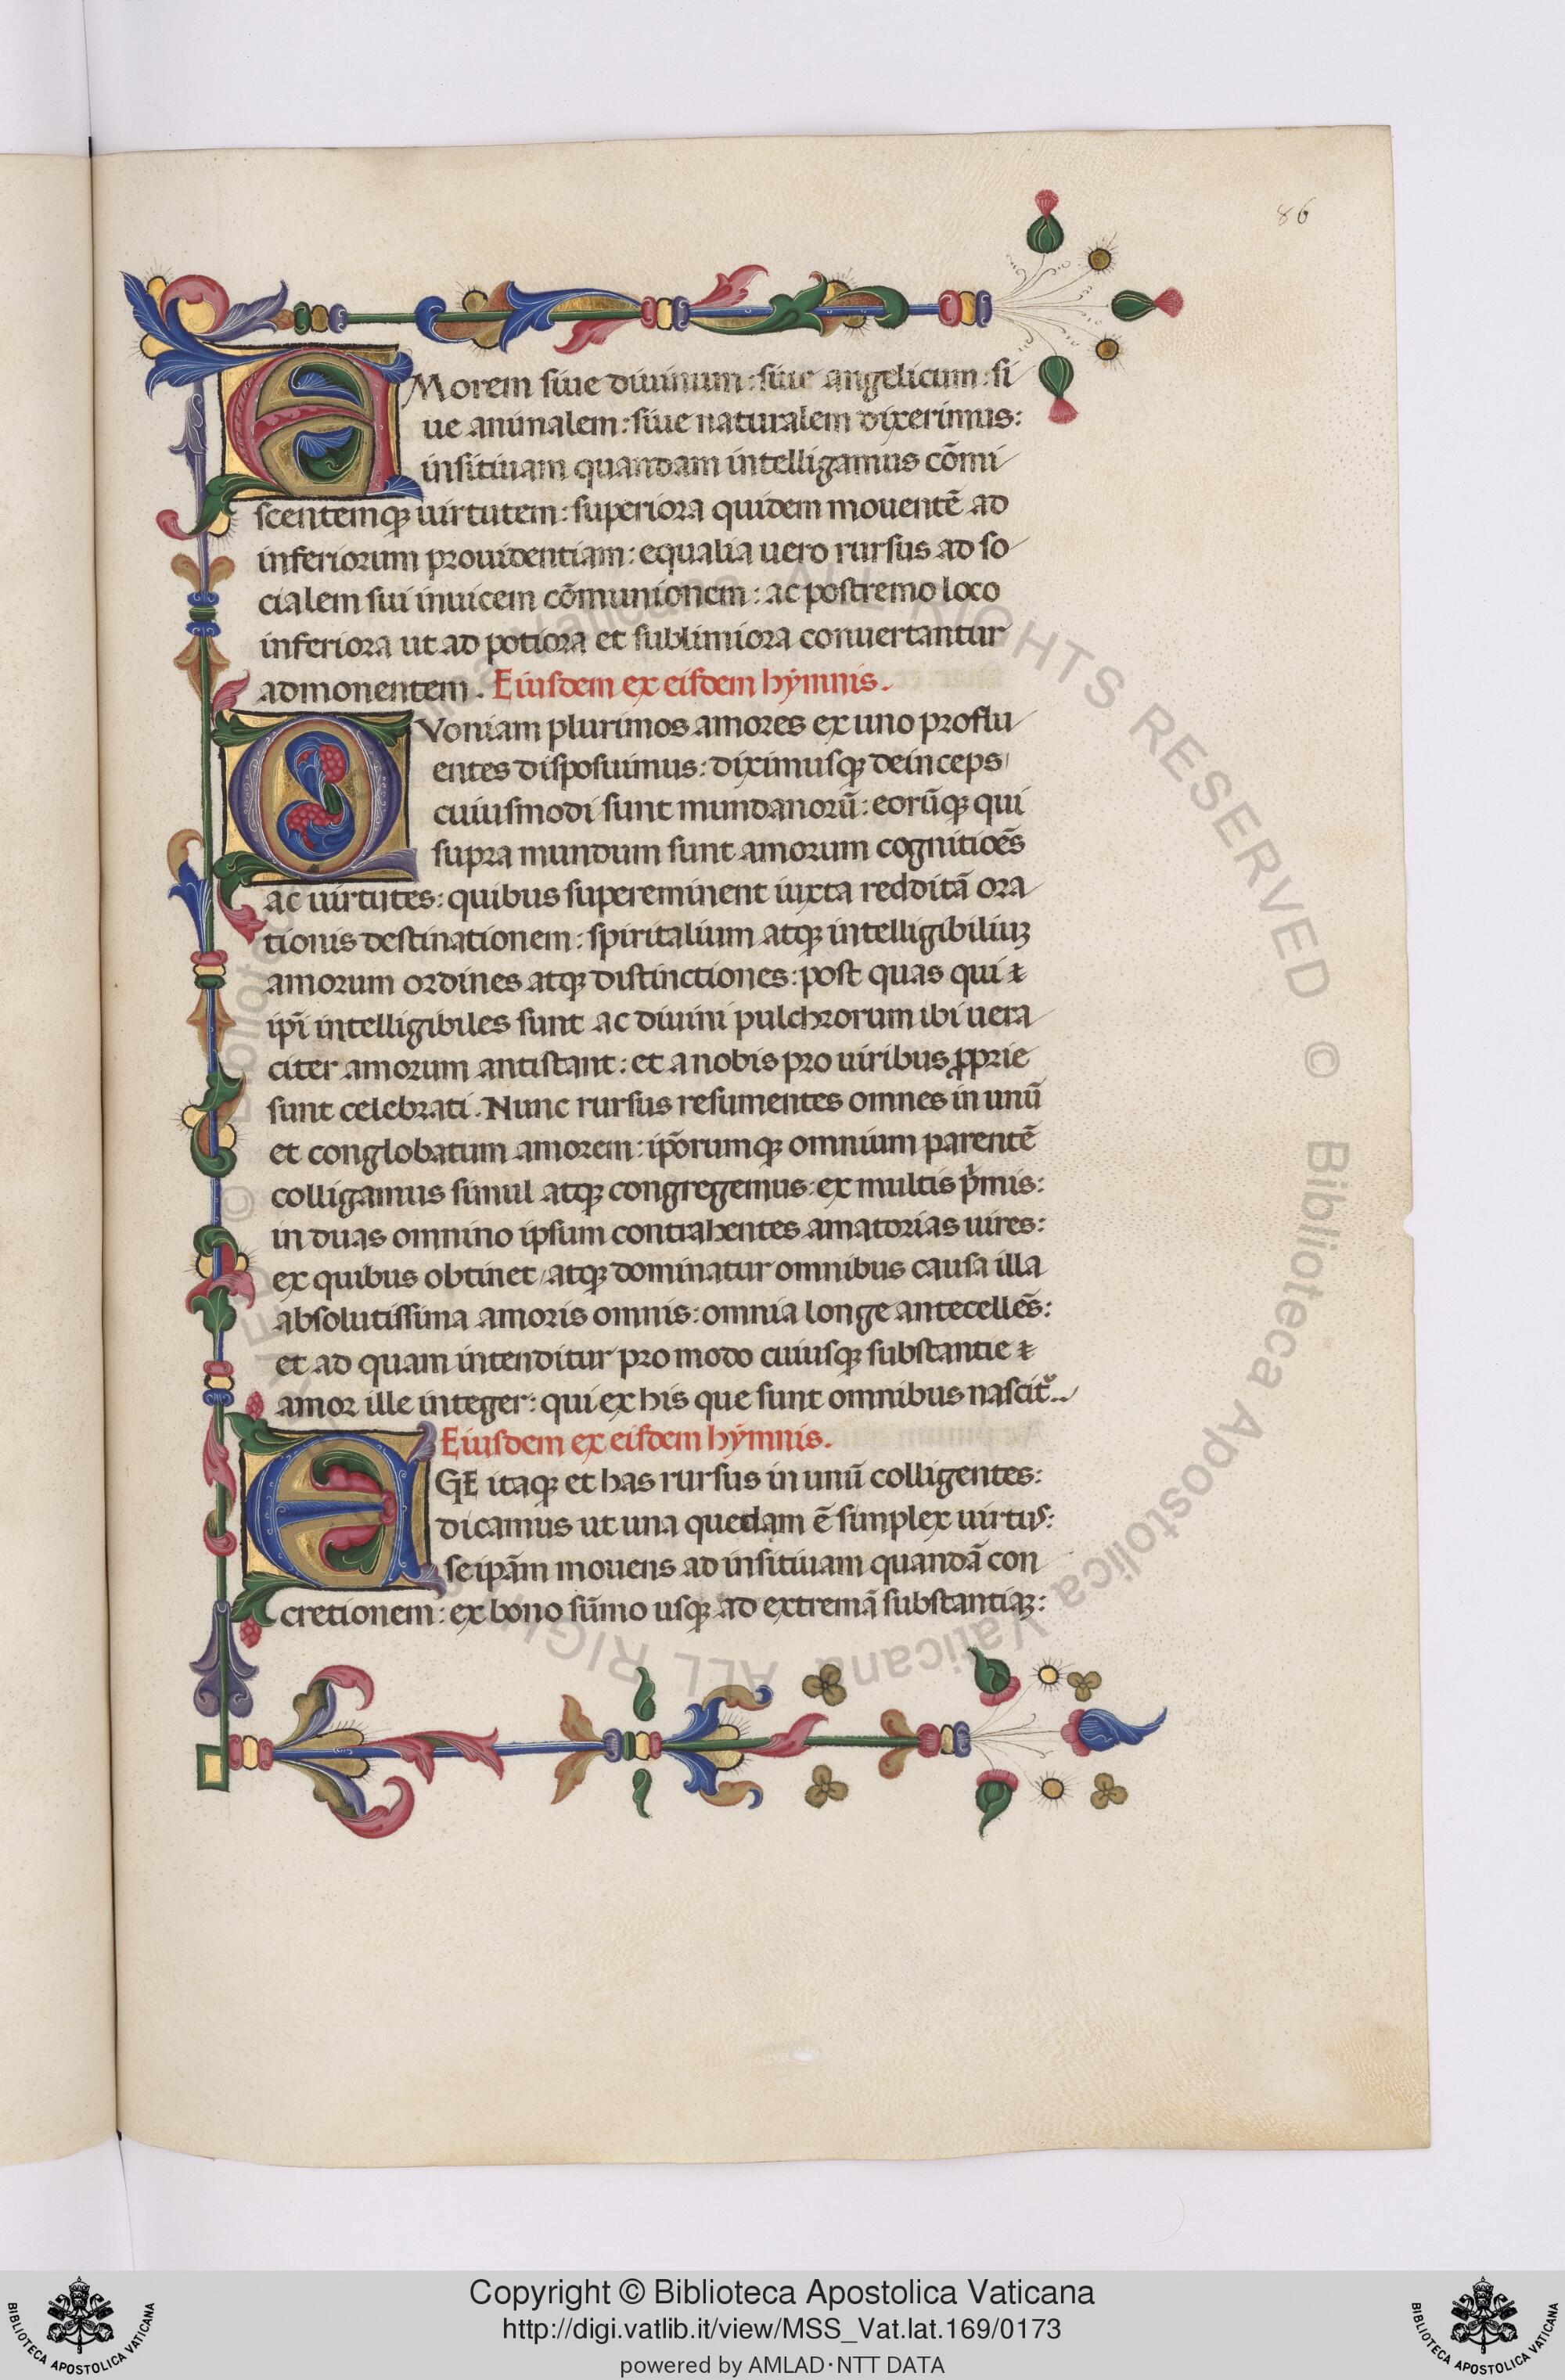 86
AMorem siue diuinum: siue angelicum: si
ue animalem: siue naturalem dixerimus:
insitiuam quandam intelligamus cõmi
scentemqꝫ uirtutem: superiora quidem mouentẽ ad
inferiorum prouidentiam: equalia uero rursus ad so
cialem sui inuicem cõmunionem: ac postremo loco
inferiora ut ad potiora et sublimiora conuertantur
admonentem. Eiusdem ex eisdem hẏmnis.
QVoniam plurimos amores ex uno proflu
entes disposuimus: diximusqꝫ deinceps
cuiusmodi sunt mundanorũ: eorũqꝫ qui
supra mundum sunt amorum cognitioẽs
ac uirtutes: quibus supereminent iuxta redditã ora
tionis destinationem: spiritalium atqꝫ intelligibiliuꝫ
amorum ordines atqꝫ distinctiones: post quas qui ⁊
ip̃i intelligibiles sunt ac diuini pulchrorum ibi uera
citer amorum antistant: et a nobis pro uiribus ꝓprie
sunt celebrati. Nunc rursus resumentes omnes in unũ
et conglobatum amorem: ip̃orumqꝫ omnium parentẽ
colligamus simul atqꝫ congregemus: ex multis pͥmis:
in duas omnino ipsum contrahentes amatorias uires:
ex quibus obtinet / atqꝫ dominatur omnibus causa illa
absolutissima amoris omnis: omnia longe antecellẽs:
et ad quam intenditur pro modo cuiusqꝫ substantie ⁊
amor ille integer: qui ex his que sunt omnibus nascit᷑..
Eiusdem ex eisdem hẏmnis.
AGE itaqꝫ et has rursus in unũ colligentes:
dicamus ut una quedam ẽ simplex uirtus:
se ip̃am mouens ad insitiuam quandã con
cretionem: ex bono sũmo usqꝫ ad extremã substantiaꝫ:
© Biblioteca Apostolica Vaticana ALL RIGHTS RESERVED
© Biblioteca Apostolica Vaticana ALL RIGHTS RESERVED
Copyright © Biblioteca Apostolica Vaticana
http://digi.vatlib.it/view/MSS_Vat.lat.169/0173
powered by AMLAD·NTT DATA
BIBLIOTECA APOSTOLICA VATICANA
BIBLIOTECA APOSTOLICA VATICANA